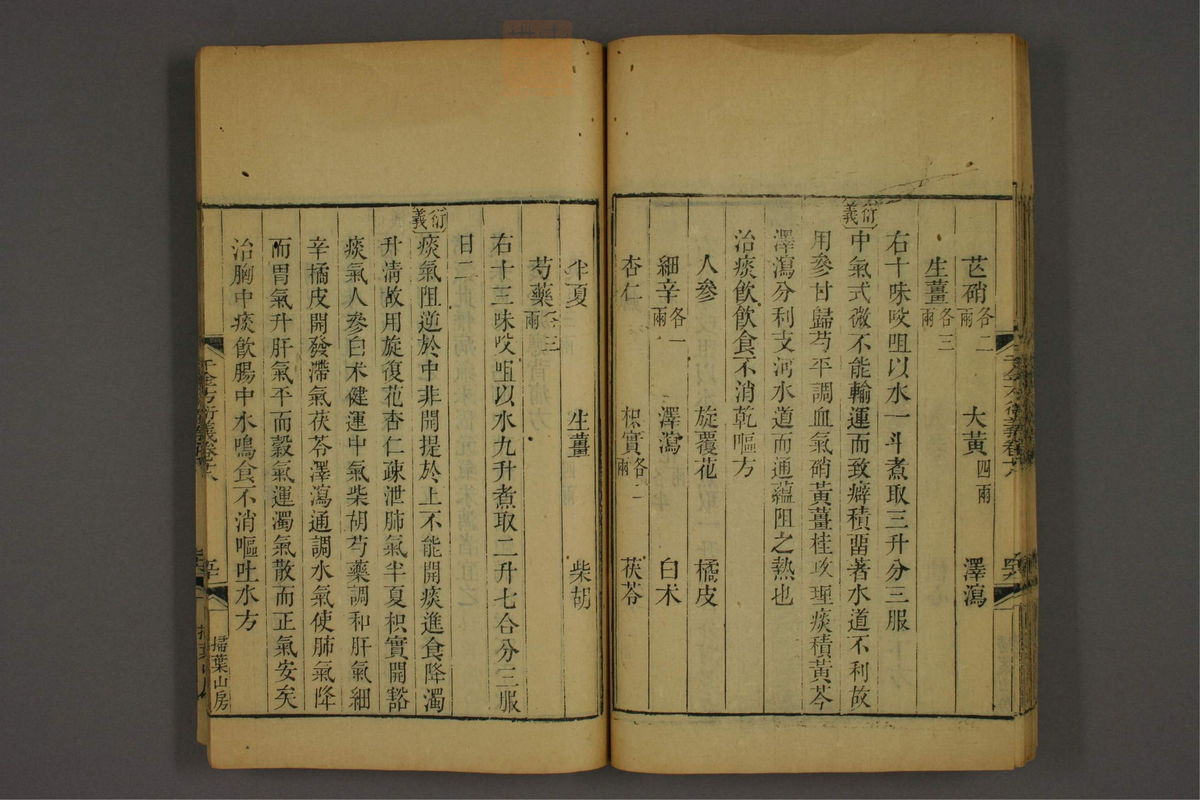 芒硝各二兩 大黃四兩 澤瀉
生薑各三兩
右十味㕮咀以水一斗煮取三升分三服
衍義中氣式微不能輸運而致癖積畱著水道不利故
用參甘歸芍平調血氣硝黃薑桂攻癖痰積黃芩
澤瀉分利支河水道而通蘊阻之熱也
治痰飲飲食不消乾嘔方
人參 旋覆花 橘皮
細辛各一兩 澤瀉 白朮
杏仁 枳實各二兩 茯苓
半夏 生薑 柴胡
芍藥各三兩
右十三味㕮咀以水九升煮取二升七合分三服
日二
衍義痰氣阻逆於中非開提於上不能開痰進食降濁
升清故用旋復花杏仁疎泄肺氣半夏枳實開豁
痰氣人參白朮健運中氣柴胡芍藥調和肝氣細
辛橘皮開發滯氣茯苓澤瀉通調水氣使肺氣降
而胃氣升肝氣平而穀氣運濁氣散而正氣安矣
治胸中痰飲腸中水鳴食不消嘔吐水方
千金方衍義卷十八
掃葉山房